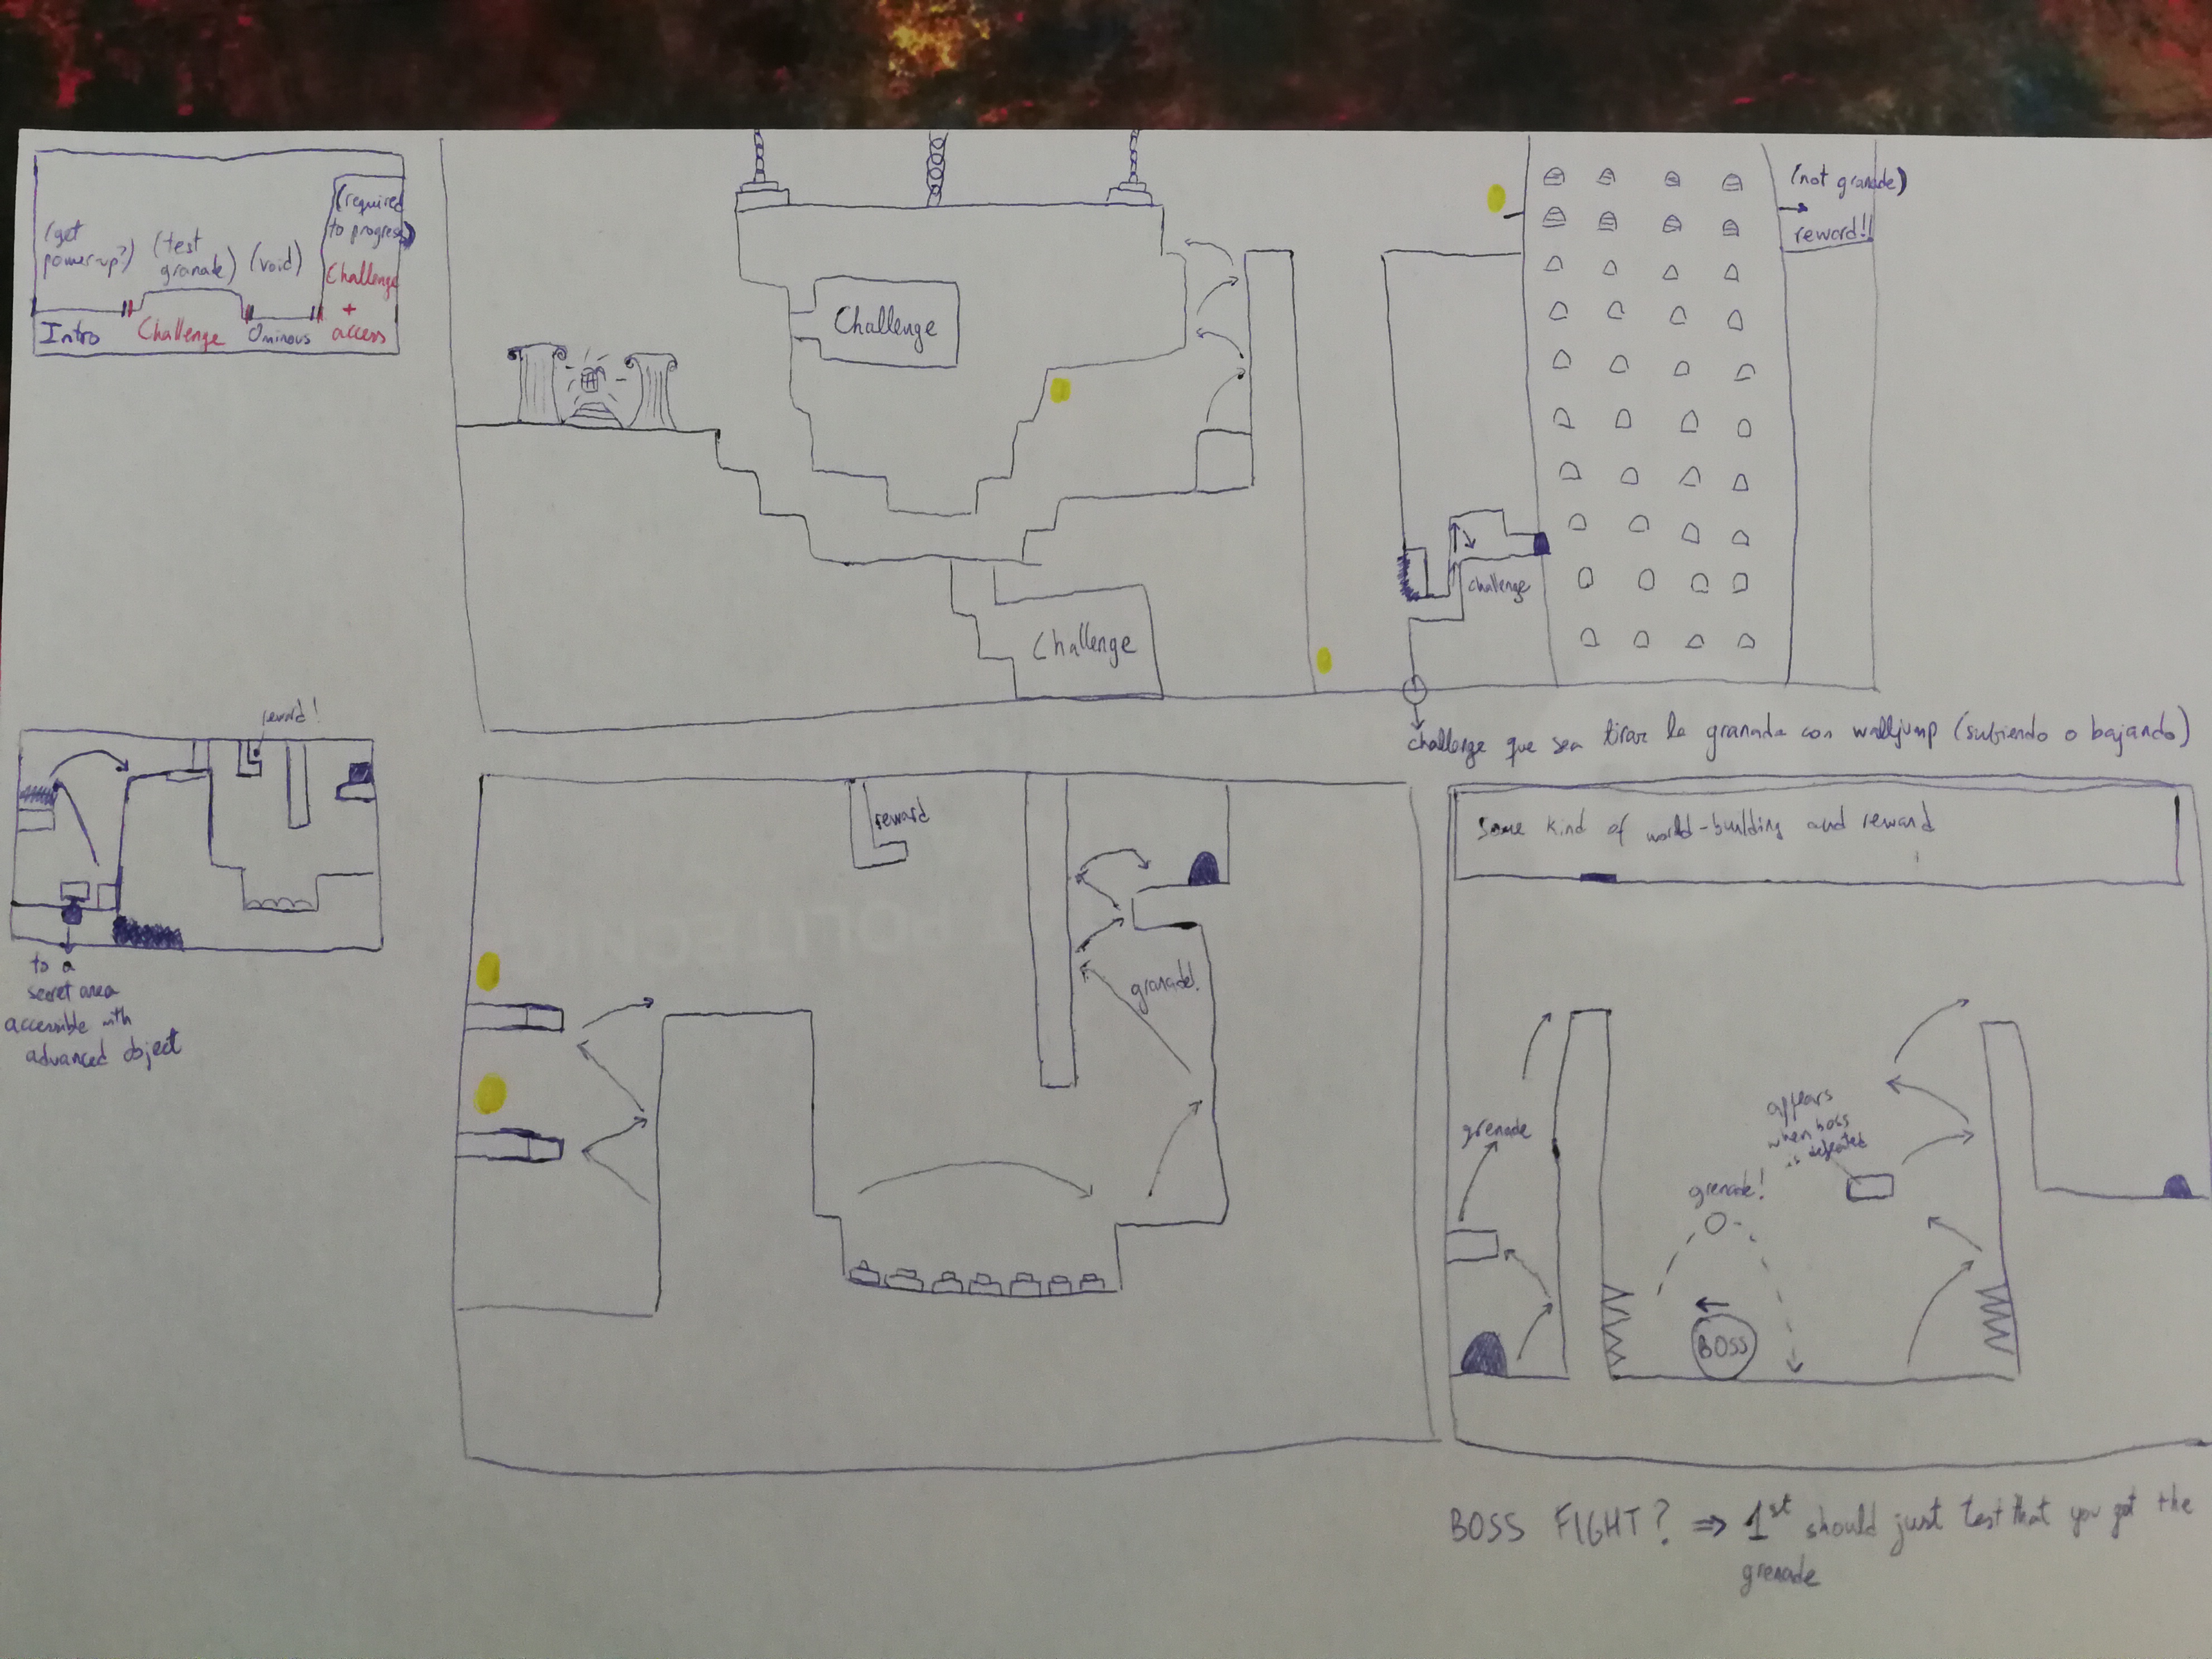 (get
power-up?)
(test
granade)
(void)
(required
to progress)
Challenge
+
access
Intro
Challenge
Ominous
Challenge
Challenge
challenge
(not granade)
reward!!
challenge que sea tirar la granada con walljump (subiendo o bajando)
reward!
to a
secret area
accessible with
advanced object
reward
granade!
Some kind of world-building and reward
grenade
grenade!
appears
when boss
is defeated
BOSS
BOSS FIGHT? ⇒ 1st should just test that you got the
grenade